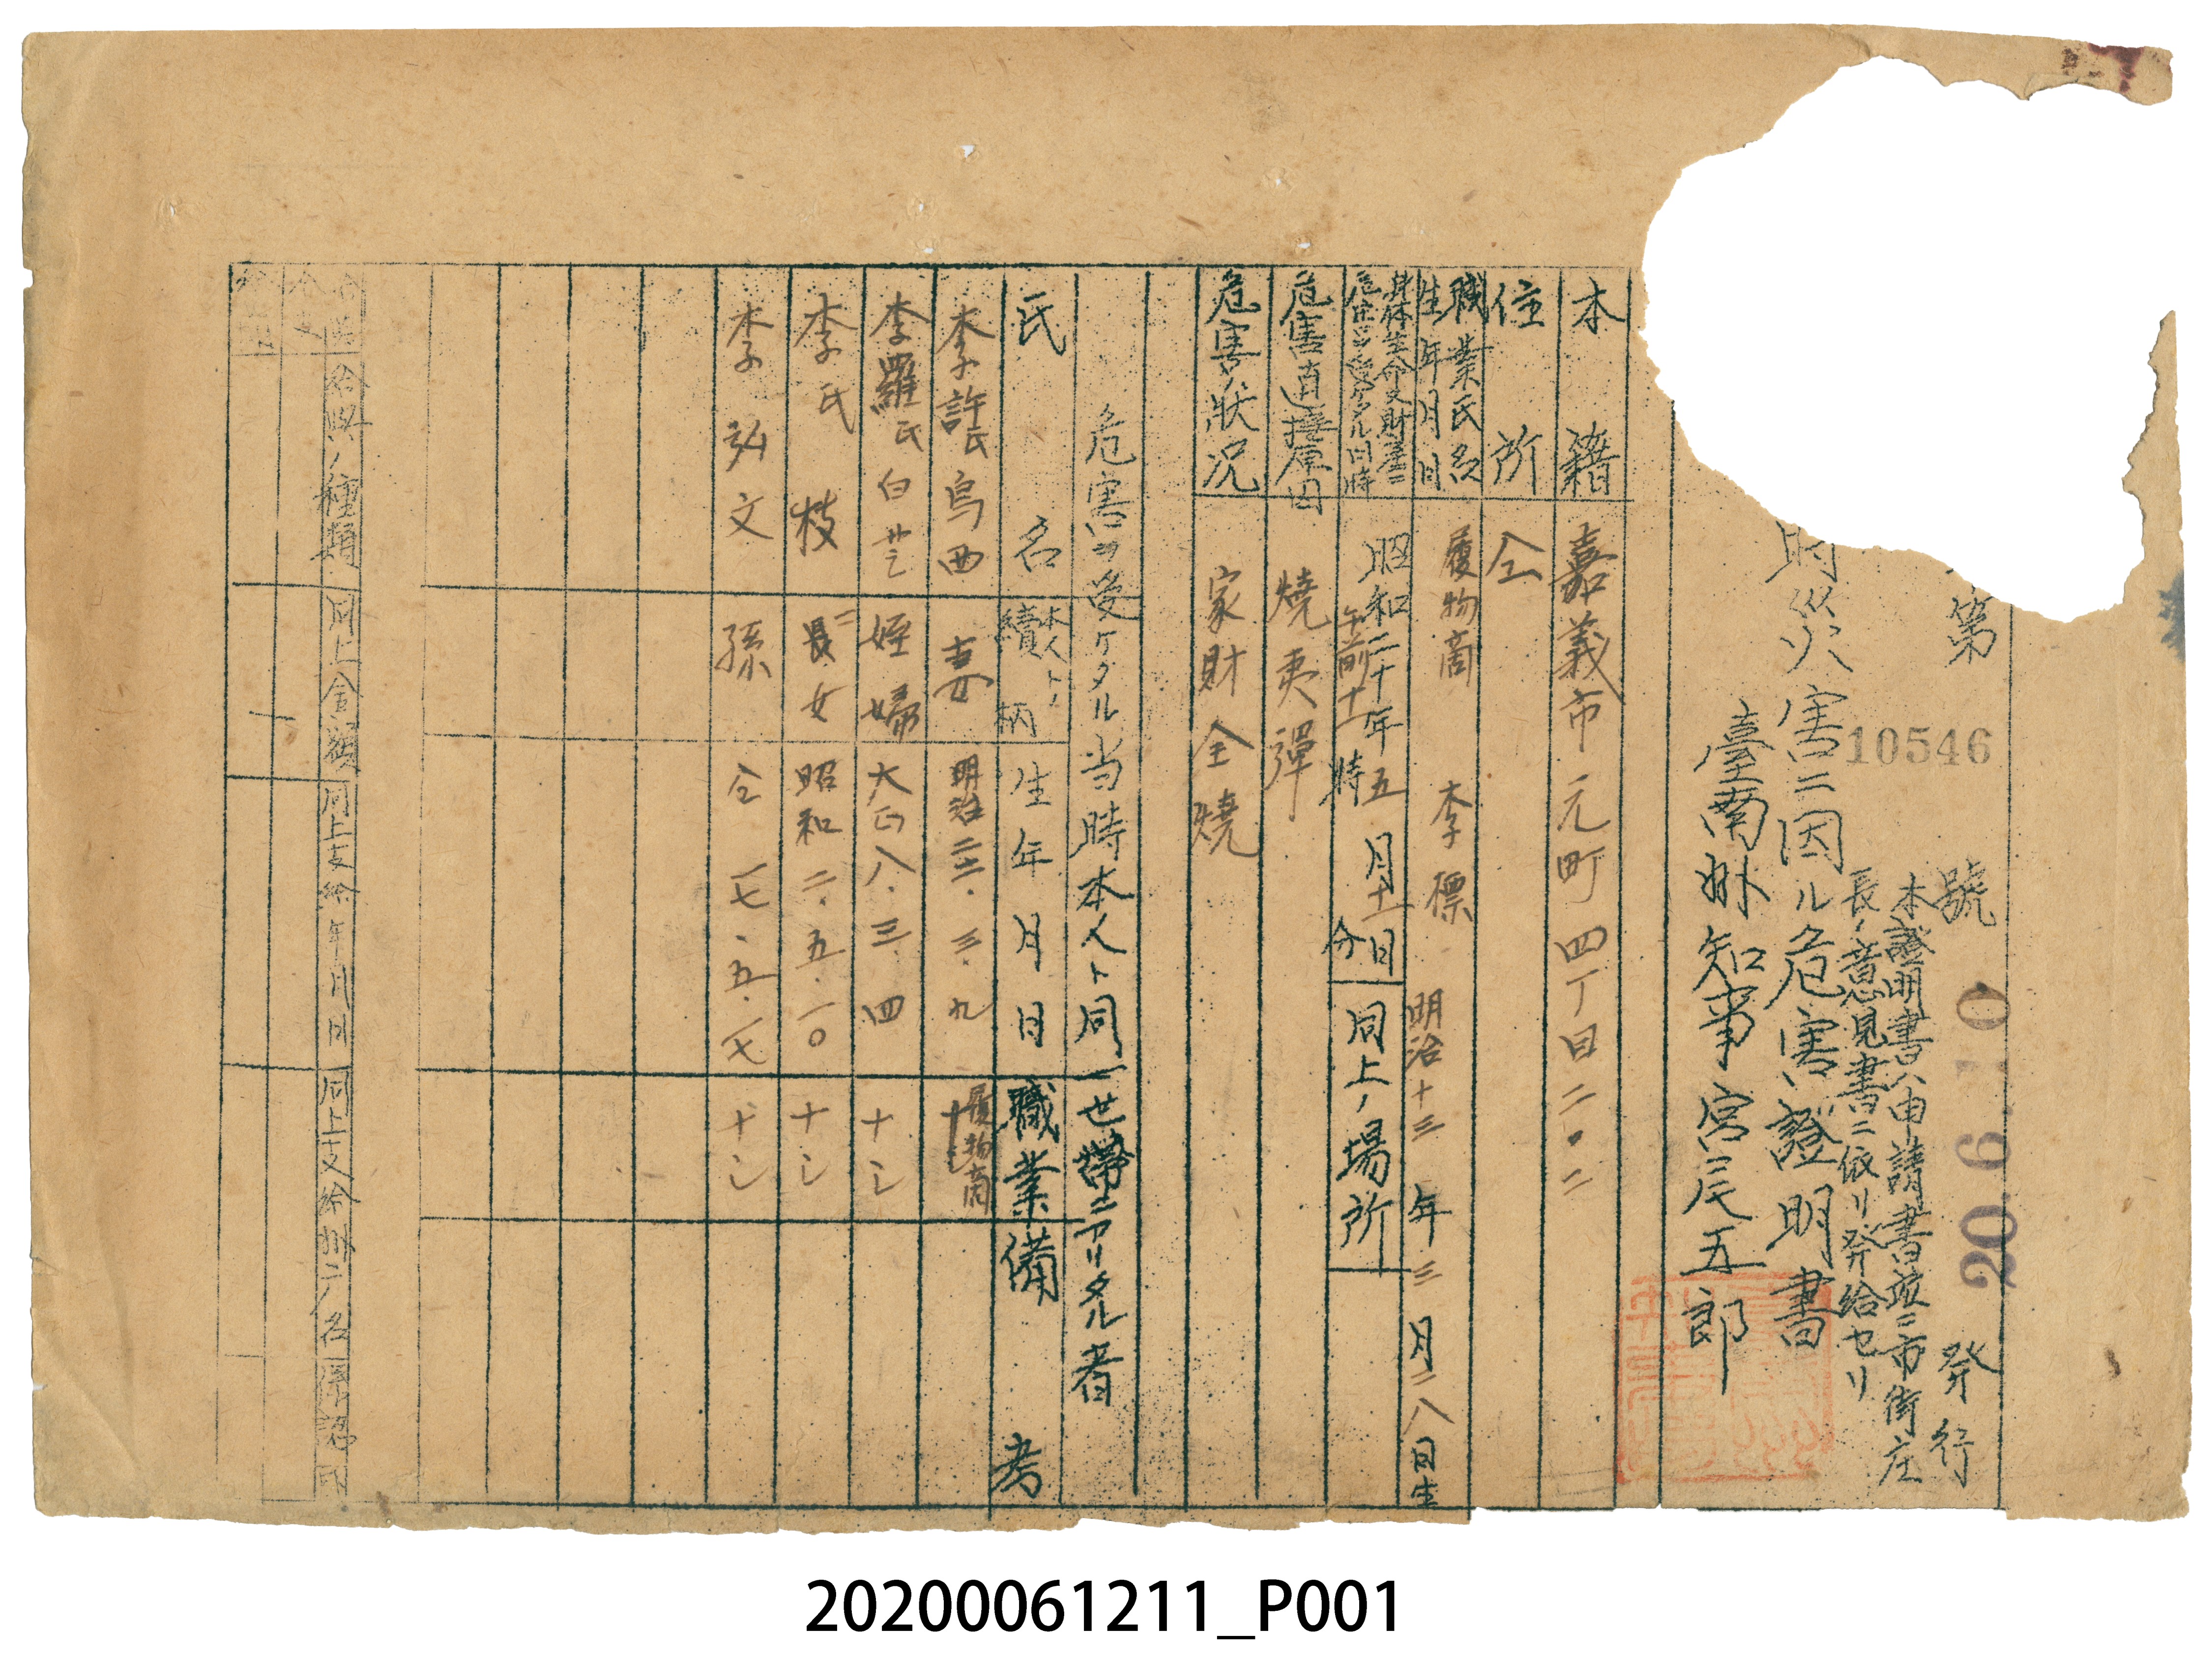 第 10546 號 20.6.10 発行
本證明書ハ申請書並ニ市街庄
長ノ意見書ニ依リ発給セリ
時災害ニ因ル危害證明書
臺南州知事宮尾五郎
本籍 嘉義市元町四丁目二〇二
住所 仝
職業氏名 生年月日 履物商 李標 明治十三年三月二八日生
身体生命又財産ニ危害ヲ受ケタル日時 昭和二十年五月十一日 午前十一時 分 同上ノ場所
危害直接原因 燒夷彈
危害狀况 家財全燒
危害ヲ受ケタル当時本人ト同一世帶ニアリタル者
氏名 本人トノ續柄 生年月日 職業 備考
李許氏烏西 妻 明治二三.三.九 履物商
李羅氏白 姪婦 大正八.三.四 ナシ
李氏枝 二女 昭和二.五.一〇 ナシ
李弘文 孫 仝一七.五.一七 ナシ
給與ノ種類 同上金額 同上支給年月日 同上支給州廳名 承認印
20200061211_P001